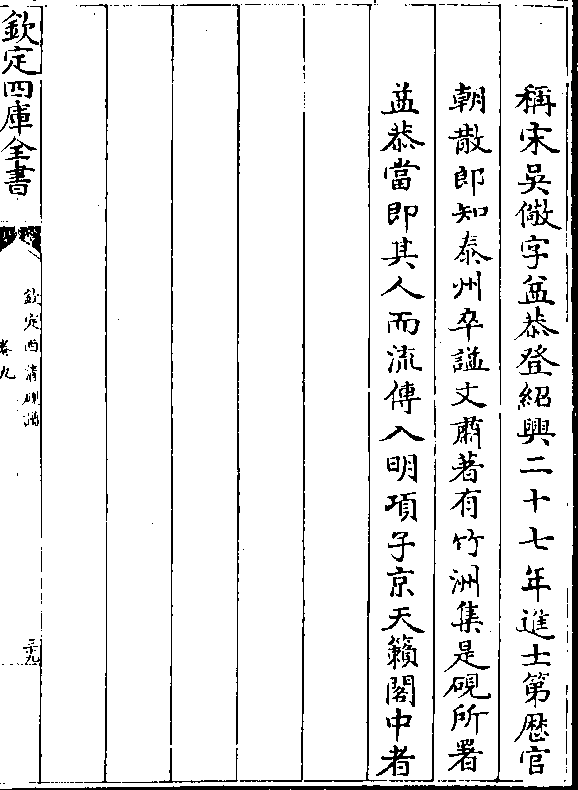 稱宋吳儆字益恭登紹興二十七年進士第歴官
朝散郎知泰州卒諡文肅著有竹洲集是硯所署
益恭當即其人而流傳入明項子京天籟閣中者
欽定四庫全書
欽定西清硯譜
卷九
三十九